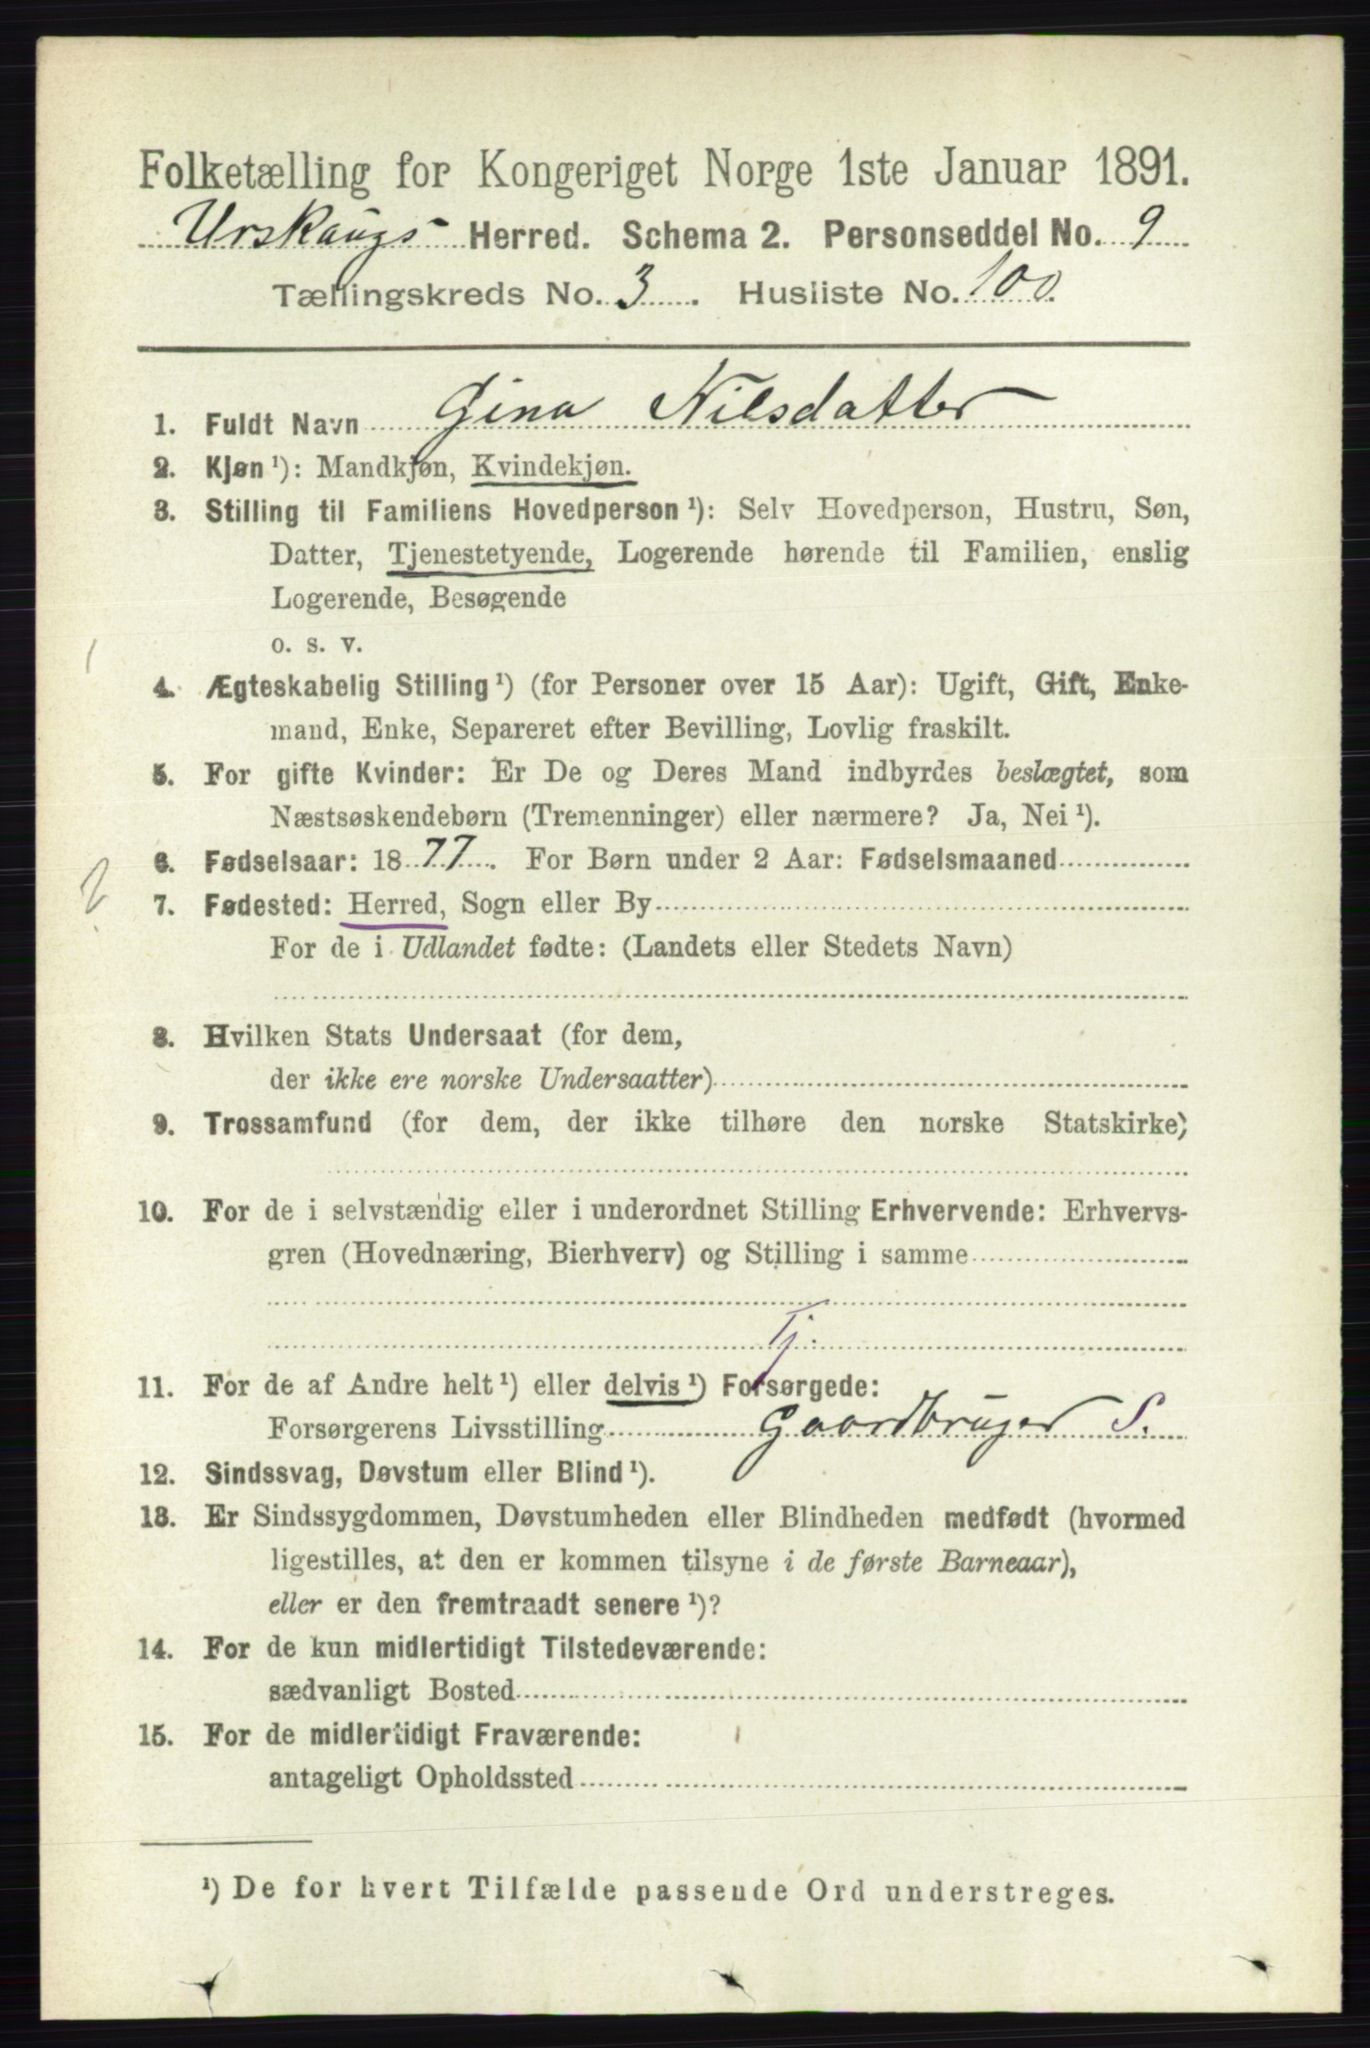 Folketælling for Kongeriget Norge 1ste Januar 1891.
Urskaugs Herred. Schema 2. Personseddel No. 9
Tællingskreds No. 3. Husliste No. 100.
1. Fuldt Navn Gina Nilsdatter
2. Kjøn ¹): Mandkjøn, Kvindekjøn.
3. Stilling til Familiens Hovedperson ¹): Selv Hovedperson, Hustru, Søn,
Datter, Tjenestetyende, Logerende hørende til Familien, enslig
Logerende, Besøgende
o. s. v.
1
4. Ægteskabelig Stilling ¹) (for Personer over 15 Aar): Ugift, Gift, Enke-
mand, Enke, Separeret efter Bevilling, Lovlig fraskilt.
5. For gifte Kvinder: Er De og Deres Mand indbyrdes beslægtet, som
Næstsøskendebørn (Tremenninger) eller nærmere? Ja, Nei ¹).
6. Fødselsaar: 1877. For Børn under 2 Aar: Fødselsmaaned
2
7. Fødested: Herred, Sogn eller By
For de i Udlandet fødte: (Landets eller Stedets Navn)
8. Hvilken Stats Undersaat (for dem,
der ikke ere norske Undersaatter)
9. Trossamfund (for dem, der ikke tilhøre den norske Statskirke)
10. For de i selvstændig eller i underordnet Stilling Erhvervende: Erhvervs-
gren (Hovednæring, Bierhverv) og Stilling i samme
Tj.
11. For de af Andre helt ¹) eller delvis ¹) Forsørgede:
Forsørgerens Livsstilling Gaardbruger S.
12. Sindssvag, Døvstum eller Blind ¹).
13. Er Sindssygdommen, Døvstumheden eller Blindheden medfødt (hvormed
ligestilles, at den er kommen tilsyne i de første Barneaar),
eller er den fremtraadt senere ¹)?
14. For de kun midlertidigt Tilstedeværende:
sædvanligt Bosted
15. For de midlertidigt Fraværende:
antageligt Opholdssted
¹) De for hvert Tilfælde passende Ord understreges.